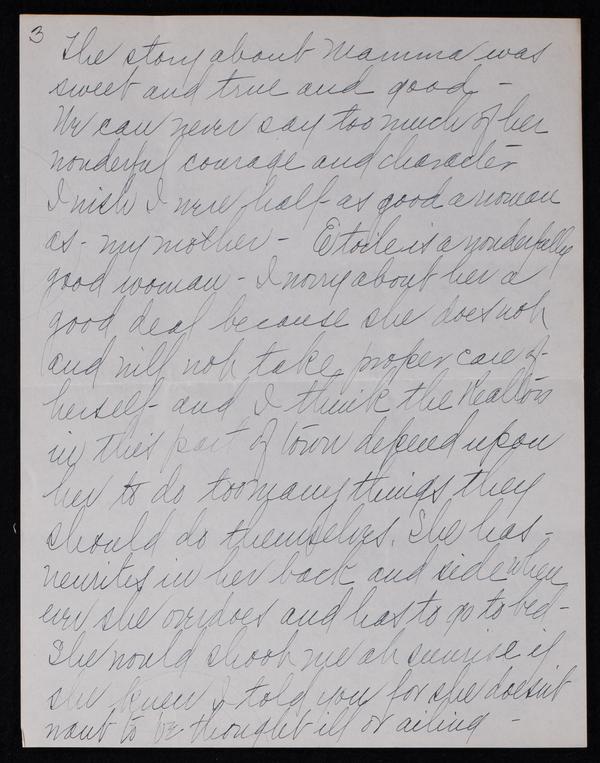 3
The story about Mamma was
sweet and true and good -
We can never say too much of her
wonderful courage and character
I wish I were half as good a woman
as - my mother - Etoile is a wonderfully
good woman - I worry about her a
good deal because she does not
and will not take proper care of
herself - and I think the Realtors
in this part of town depend upon
her to do too many things they
should do themselves. She has -
neuritis in her back and side when
ever she overdoes and has to go to bed -
She would shoot me at sunrise if
she knew I told you for she doesn't
want to be thought ill or ailing -